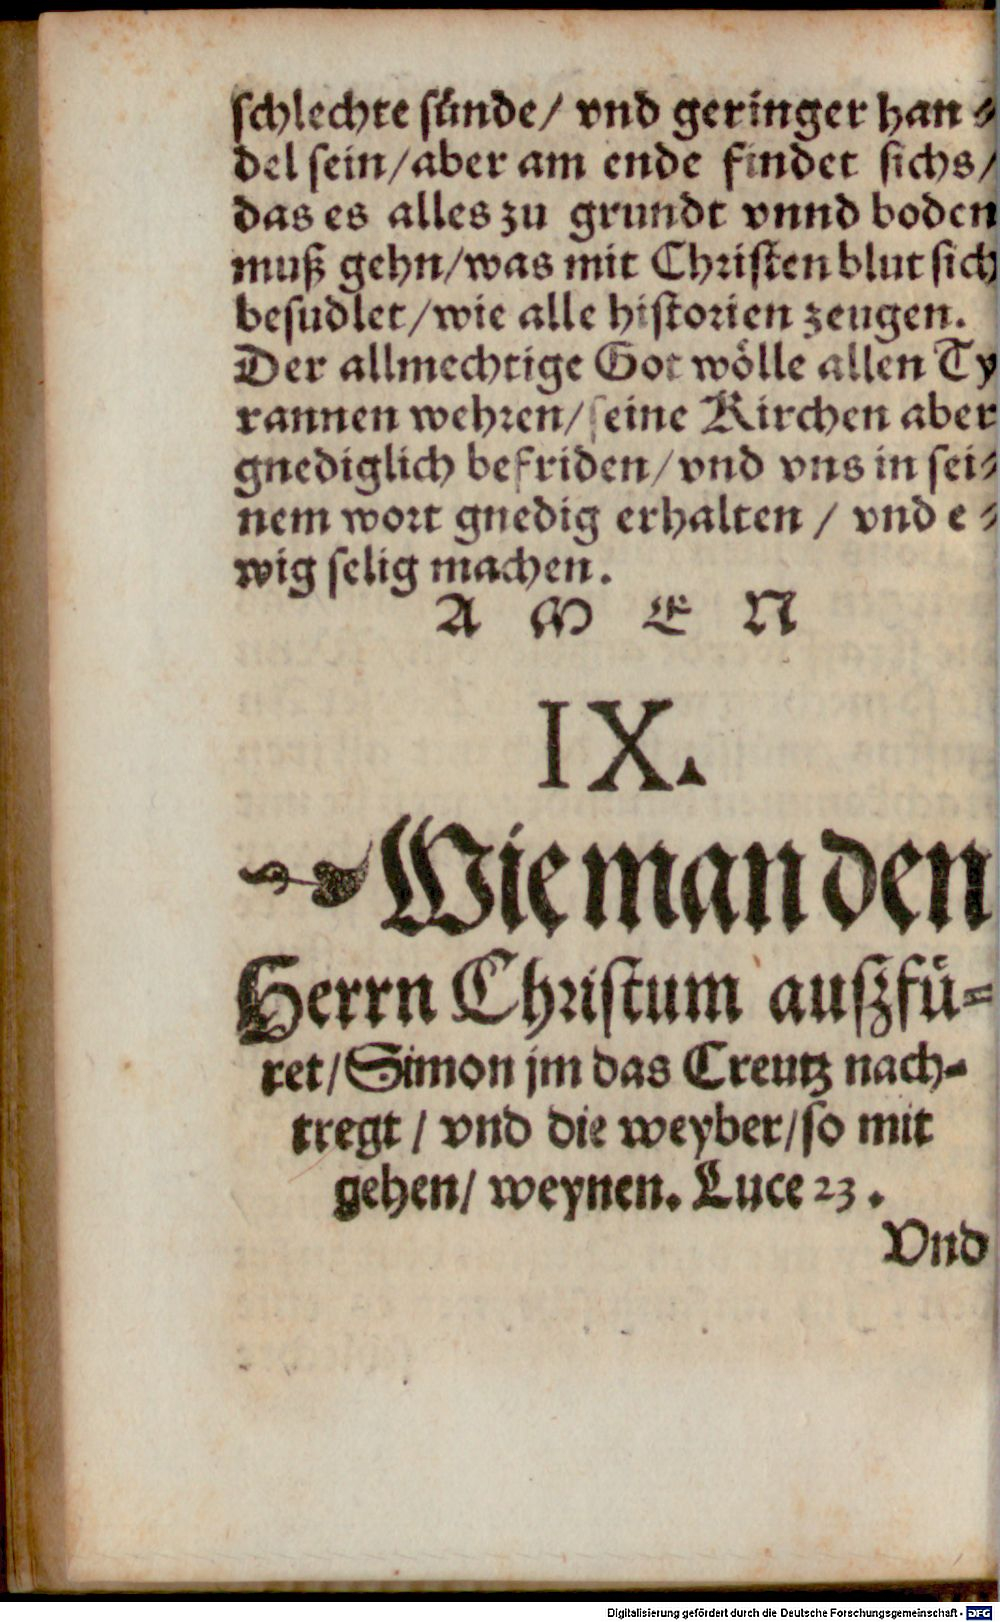 schlechte sünde/ vnd geringer han⸗
del sein/aber am ende findet sichs/
das es alles zu grundt vnnd boden
muß gehn/was mit Christen blut sich
besudlet/wie alle historien zeugen.
Der allmechtige Got wölle allen Ty
rannen wehren/seine Kirchen aber
gnediglich befriden/vnd vns in sei⸗
nem wort gnedig erhalten / vnd e⸗
wig selig machen.
A M E N
IX.
Wie man den
Herrn Christum außfü⸗
ret/Simon jm das Creutz nach⸗
tregt / vnd die weyber/so mit
gehen/ weynen. Luce 23.
Vnd
Digitalisierung gefördert durch die Deutsche Forschungsgemeinschaft - DFG